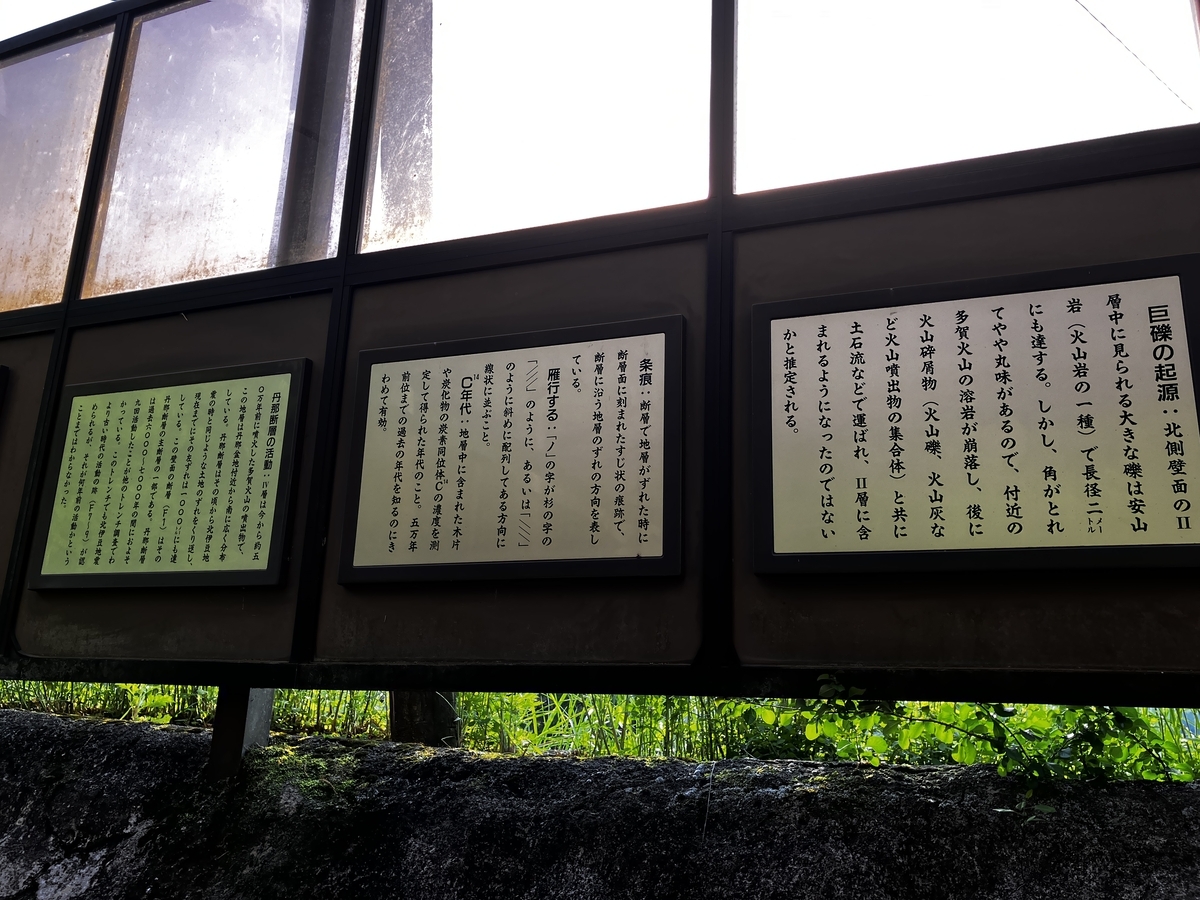 巨礫の起源：北側壁面のⅡ
層中に見られる大きな礫は安山
岩（火山岩の一種）で長径二メートル
にも達する。しかし、角がとれ
てやや丸味があるので、付近の
多賀火山の溶岩が崩落し、後に
火山砕屑物（火山礫、火山灰な
ど火山噴出物の集合体）と共に
土石流などで運ばれ、Ⅱ層に含
まれるようになったのではない
かと推定される。
条痕：断層で地層がずれた時に
断層面に刻まれたすじ状の痕跡で、
断層に沿う地層のずれの方向を表し
ている。
雁行する：「ノ」の字が杉の字の
「彡」のように、あるいは「\\\」
のように斜めに配列してある方向に
線状に並ぶこと。
¹⁴C年代：地層中に含まれた木片
や炭化物の炭素同位体C¹⁴の濃度を測
定して得られた年代のこと。五万年
前位までの過去の年代を知るのにき
わめて有効。
丹那断層の活動：Ⅳ層は今から約五
〇万年前に噴火した多賀火山の噴出物で、
この地層は丹那盆地付近から南に広く分布
している。丹那断層はその頃から北伊豆地
震の時と同じような土地のずれをくり返し、
現在までにそのくいずれは一〇〇〇にも達
している。この壁面の断層（F1）はその
丹那断層の主断層の一部である。丹那断層
は過去六〇〇〇〜七〇〇〇年の間におよそ
九回活動したことが他のトレンチ調査でわ
かっている。このトレンチでも北伊豆地震
より古い時代の活動の跡（）が認
められるが、それが何年前の活動かという
ことまではわからなかった。